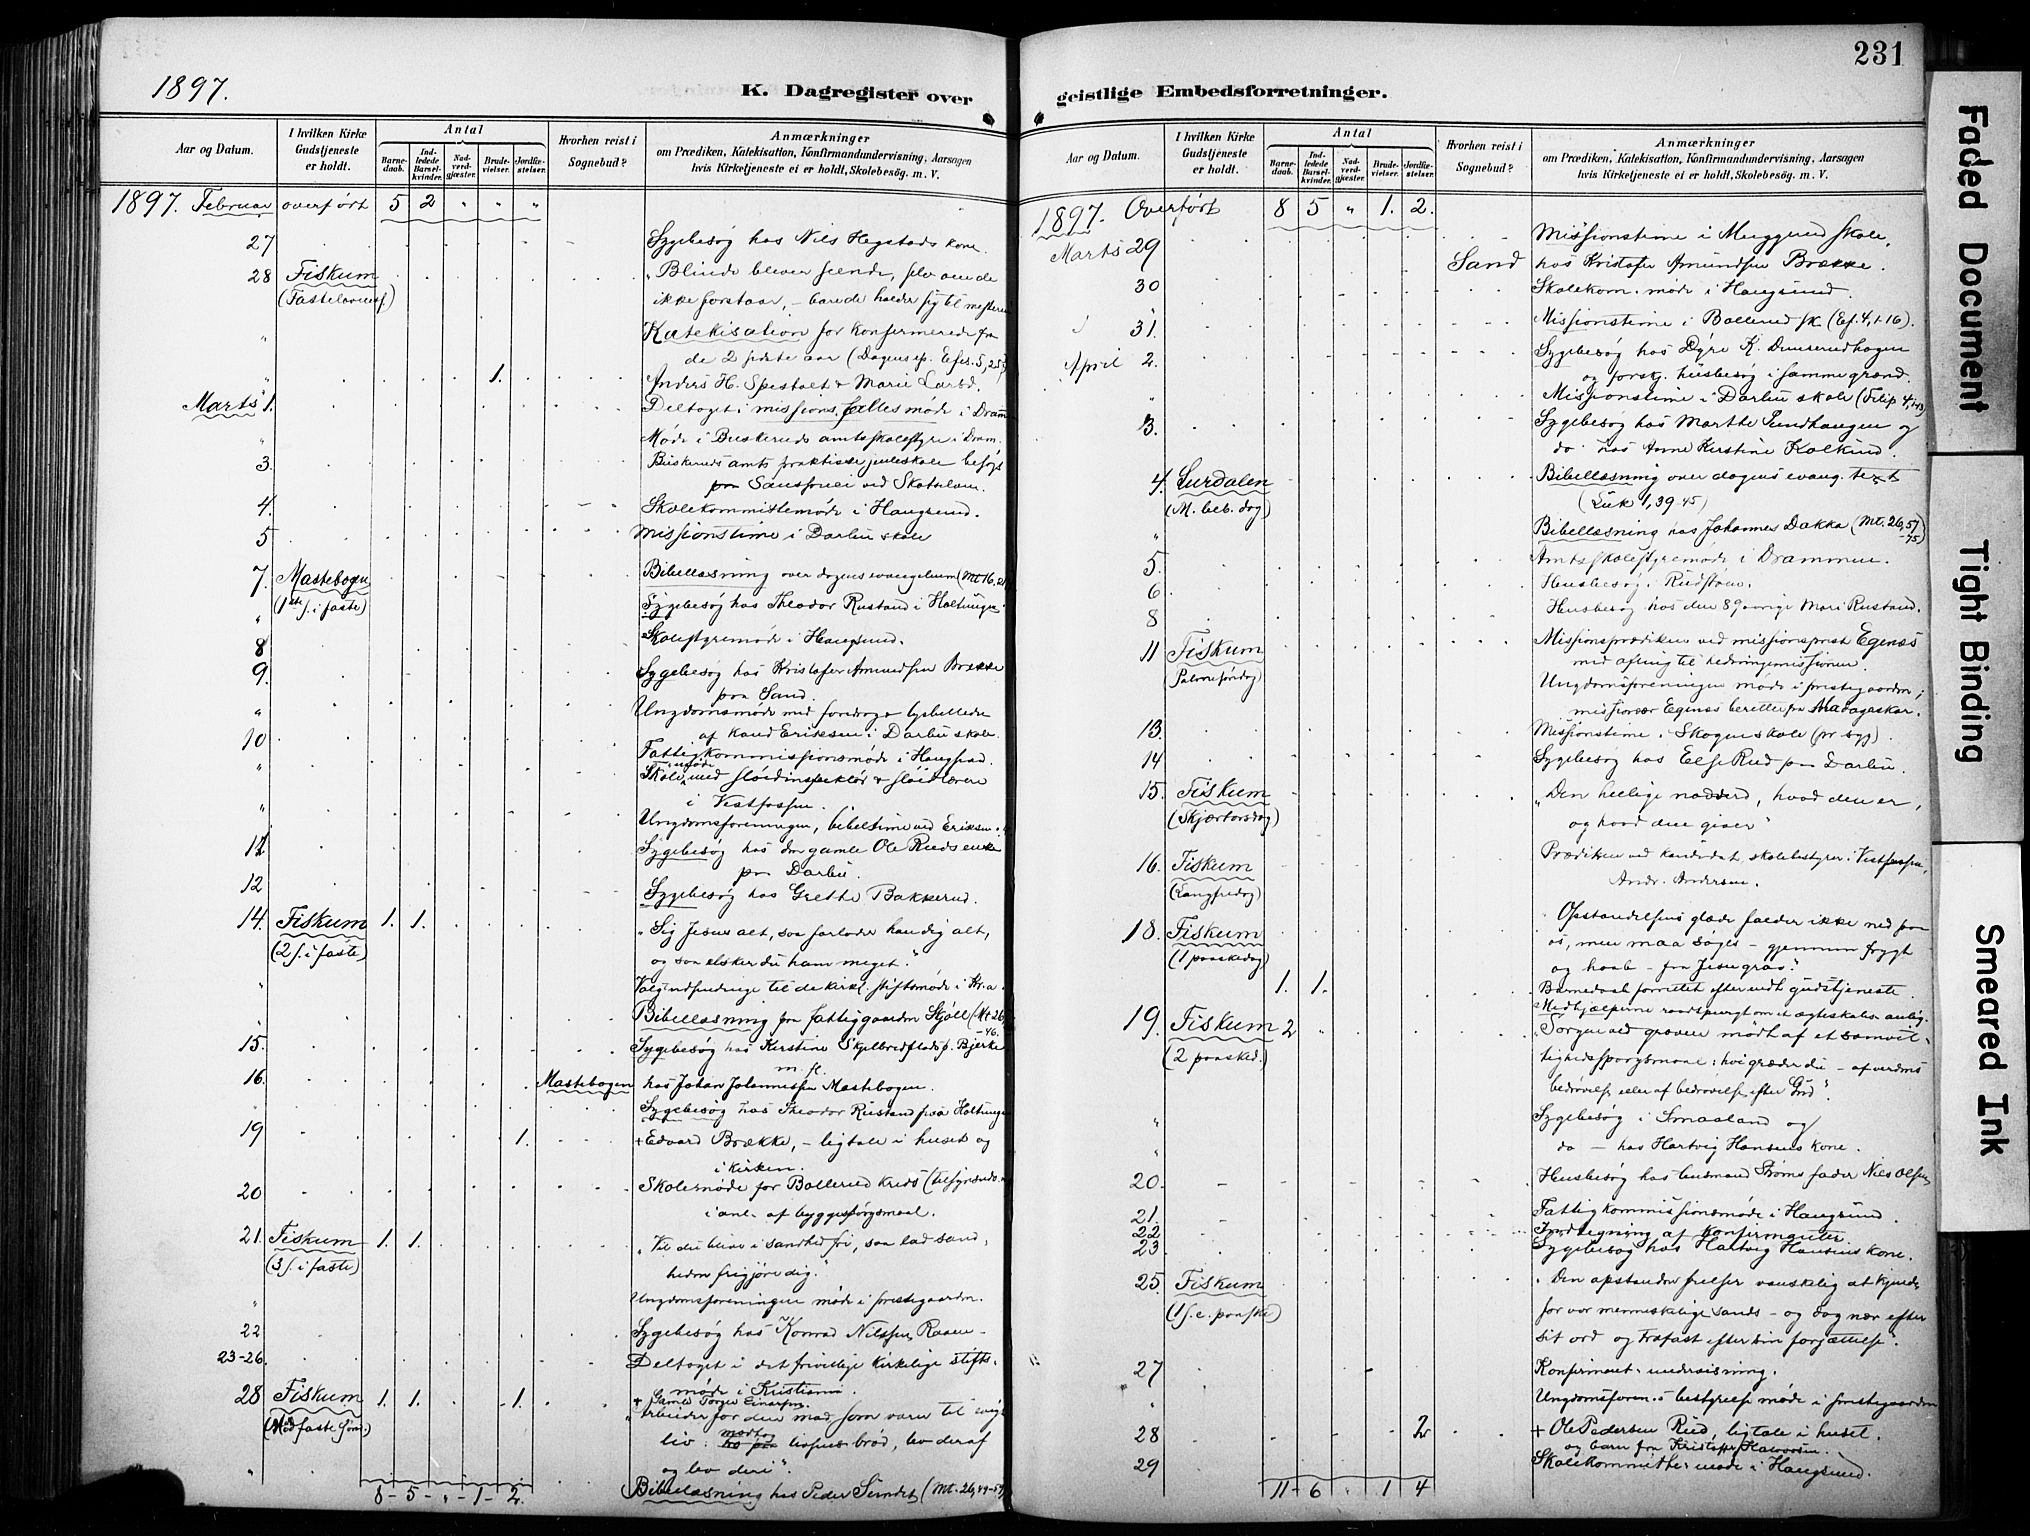 1897.
K. Dagregister over
Aar og Datum.
I hvilken Kirke Gudstjeneste er holdt.
Antal
Barnedaab.
Indledede Barselkvinder.
Nadverdgjæster.
Brudevielser.
Jordfæstelser.
Hvorhen reist i Sognebud?
Anmærkninger
om Prædiken, Katekisation, Konfirmandundervisning, Aarsagen
hvis Kirketjeneste ei er holdt, Skolebesøg. m. V.
1897. Februar overført 5 2 " " "
27 Sygebesøg hos Nils Hegstads kone.
28 Fiskum "Blinde bliver seende, selv om de
(Fastelavnsf) ikke forstaar, - bare de holder sig til mesteren
" Katekisation for konfirmerede fra
de 2 sidste aar (Dagens ep. Efes. 5, 25)
" 1. Anders H. Spestalt & Marie Larsd.
Marts 1. Deltaget i missions fællesmøde i Dramm
" Møde i Buskeruds amtsskolestyre i Dram.
3 Buskeruds amts praktiske pikeskole besøgt
paa ved Skotselven.
4. Skolekommittemøde i Haugsund.
5 Missionstime i Darbu skole
7. Mastebogen Bibellæsning over dagens evangelium (Mt 16, 21
(1ste s. i faste)
" Sygebesøg hos Theodor Rustand i Holtungen
8 Skolestyremøde i Haugsund.
9. Sygebesøg hos Kristofer Amundsen Brække
paa Sand.
" Ungdomsmøde med foredrag & lysbilleder
af kand Eriksen i Darbu skole.
10 Fattigkommissionsmøde i Haugsund.
" Skolemøde med sløidinspektør & sløidlærere
i Vestfossen.
" Ungdomsforeningen, bibeltime ved Eriksen.
12 Sygebesøg hos den gamle Ole Ruds enke
paa Darbu.
12 Sygebesøg hos Grethe Bakkerud.
14. Fiskum 1. 1. "Sig Jesus alt, saa forlader han dig alt,
(2 s. i faste) og saa elsker du ham meget."
" Valg til de kirkl. stiftsmøde i Kr.a.
" Bibellæsning paa fattiggaarden Skjøll (Mt 26
-46.
15. Sygebesøg hos Kirstine Skjelbredflad p. Bjerke
m. fl.
16. Mastebogen hos Johan Johannessen Mastebogen.
" Sygebesøg hos Theodor Rustand paa Holtungen
19 1. + Edvard Brække, - ligtale i huset og
i kirken.
20 Skolemøde for Bollerud kreds (tilsynsudv.
i anl. af byggespørgsmaal.
21. Fiskum 1. 1. "Vil du blive i sandhed fri, saa lad sand-
(3 s. i faste) heden frigjøre dig."
" Ungdomsforeningen møde i prestegaarden.
22 Sygebesøg hos Konrad Nilssen Raaen
23-26. Deltaget i det frivillige kirkelige stifts-
møde i Kristiania.
28 Fiskum 1. 1. 1. + Gamle Torger Einarsen.
(Midfaste sønd.) "Arbeider for den mad, som varer til evigt
liv: modtag livsens brød, lev deraf
og lev deri".
" Bibellæsning hos Peder Sundet (Mt. 26, 47-57)
8 - 5 - " - 1 - 2.
231
geistlige Embedsforretninger.
Aar og Datum.
I hvilken Kirke Gudstjeneste er holdt.
Antal
Barnedaab.
Indledede Barselkvinder.
Nadverdgjæster.
Brudevielser.
Jordfæstelser.
Hvorhen reist i Sognebud?
Anmærkninger
om Prædiken, Katekisation, Konfirmandundervisning, Aarsagen
hvis Kirketjeneste ei er holdt, Skolebesøg. m. V.
1897. Overført 8 5 " 1. 2.
Marts 29 Missionstime i Muggerud skole.
Sand hos Kristofer Amundsen Brække.
30 Skolekom. møde i Haugsund.
31. Missionstime i Bollerud sk (Ef. 4, 1-16).
April 2. Sygebesøg hos Dyre K. Dunserudhagen
og forskj. husbesøg i samme grænd.
" Missionstime i Darbu skole (Filip 4, 1-13)
3. Sygebesøg hos Marthe Sundhaugen og
do hos Anne Kirstine Kolkind.
4. Surdalen Bibellæsning over dagens evang. text
(M. beb. dag) (Luk 1, 39-45)
" Bibellæsning hos Johannes Dakka (Mt. 26, 57
-75)
5. Amtsskolestyremøde i Drammen.
6 Husbesøg i Rudstøen.
8 Husbesøg hos den 89 aarige Mari Rustand.
11 Fiskum Missionsprædiken ved missionsprest Egenæs
(Palmesøndag) med ofring til hedningemissionen.
Ungdomsforeningen møde i prestegaarden;
missionær Egenæs beretter fra Madagaskar.
13. Missionstime i Skogen skole (nr byg).
14 Sygebesøg hos Else Rud paa Darbu.
15. Fiskum "Den hellige nadverd, hvad den er,
(Skjærtorsdag) og hvad den giver"
16. Fiskum Prædiken ved kandidat, skolebestyrer i Vestfossen,
(Langfredag) Andr. Andersen.
18. Fiskum "Opstandelsens glæde falder ikke ned paa
(1 paaskedag) os, men maa søges - gjennem frygt
og haab - fra Jesu grav."
1. 1. Barnedaab forrettet efter endt gudstjeneste.
Medhjælperne raadspurgt om et ægteskabs anlig.
19. Fiskum 2 " "Sorgen ved graven mødt af et samvit-
(2 paasked.) tighedsspørgsmaal: hvi græder du - af verdens
bedrøvelse eller af bedrøvelse efter Gud".
" Sygebesøg i Smaaland og
" do - hos Hartvig Hansens kone.
20. Husbesøg hos lensmand Strøms fader Nils Olsen
21. Fattigkommissionsmøde i Haugsund.
22 Indtegning af Konfirmanter
23 Sygebesøg hos Hartvig Hansens kone.
25. Fiskum "Den opstandne frelser vanskelig at kjende
(1 s. e. paaske) for vor menneskelige sands - og dog nær efter
sit ord og trofast efter sin forjættelse".
27 Konfirmant-undervisning.
" Ungdomsforen.s bestyrelse møde i prestegaarden
28 2 + Ole Pedersen Rud, ligtale i huset.
og barn fra Kristoffer Halvorsen.
29 Skolekommitte-møde i Haugsund.
11 - 6 " 1 4
Faded Document
Tight Binding
Smeared Ink